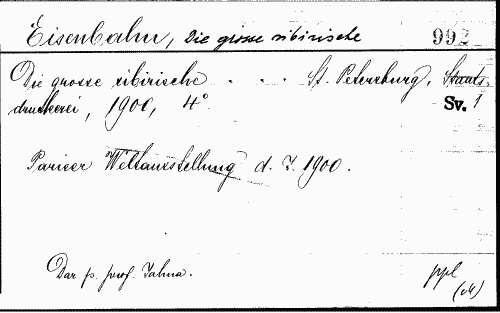 Eisenbahn, Die grosse sibirische 992
Die grosse sibirische . . . St. Petersburg, Staats-
druckerei, 1900, 4° Sv. 1
Pariser Weltausstellung d. J. 1900.
Dar p. prof. Jahna. ppl